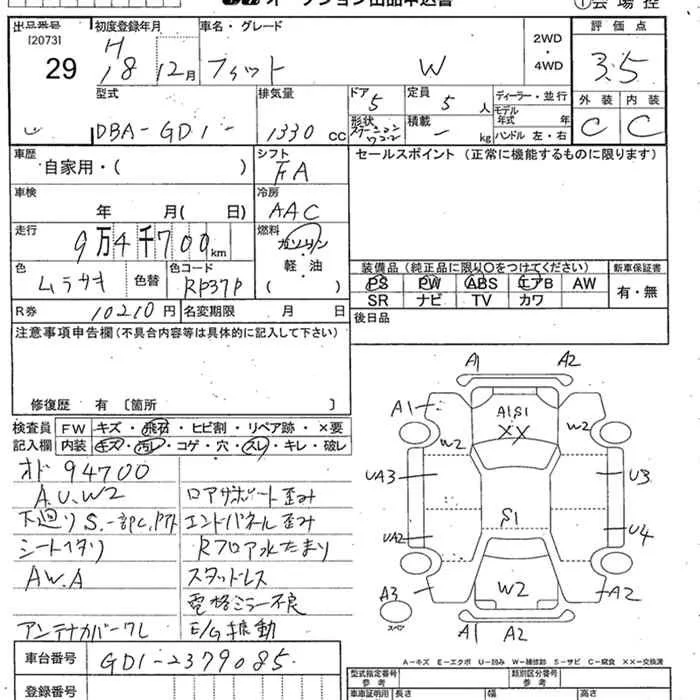 オークション出品申込書
①会場控
出品番号 初度登録年月 車名・グレード 2WD 評価点
[2073] H 4WD
29 18 12月 フィット W 3.5
型式 排気量 ドア 定員 ディーラー・並行 外装 内装
5 5人 モデル年式 年
DBA-GD1 1330cc 形状 ステーションワゴン 積載 kg ハンドル 左・右 C C
車歴 シフト セールスポイント(正常に機能するものに限ります)
自家用・( ) FA
車検 冷房
年 月( 日) AAC
走行 燃料
9万4千700km ガソリン
色 色替 色コード 軽・油 装備品(純正品に限り○をつけてください) 新車保証書
ムラサキ RP37P ( ) PS PW ABS エアB AW 有・無
SR ナビ TV カワ
R券 10210円 名変期限 月 日 後日品
注意事項申告欄(不具合内容等は具体的に記入して下さい)
修復歴 有 [箇所 ]
検査員 FW キズ・飛石・ヒビ割・リペア跡・×要
記入欄 内装 キズ・汚レ・コゲ・穴・スレ・キレ・破レ
オド 94700
A.U.W2 ロアサポート歪み
下廻りS.一部PC,Pアト エンドパネル歪み
シートヘタリ Rフロア水たまり
AW.A スタッドレス
電格ミラー不良
アンテナカバークレ E/G振動
車台番号 GD1-2379085
登録番号
A1 A2
A1 A1S1 XX W2 W2
UA3 U3
S1
UA2 U4
A3 W2 A2
スペア
A1 A2
A-キズ E-エクボ U-凹み W-補修跡 S-サビ C-腐食 XX-交換済
型式指定番号 参考 類別区分番号 参考
車庫証明用 長さ 幅 高さ